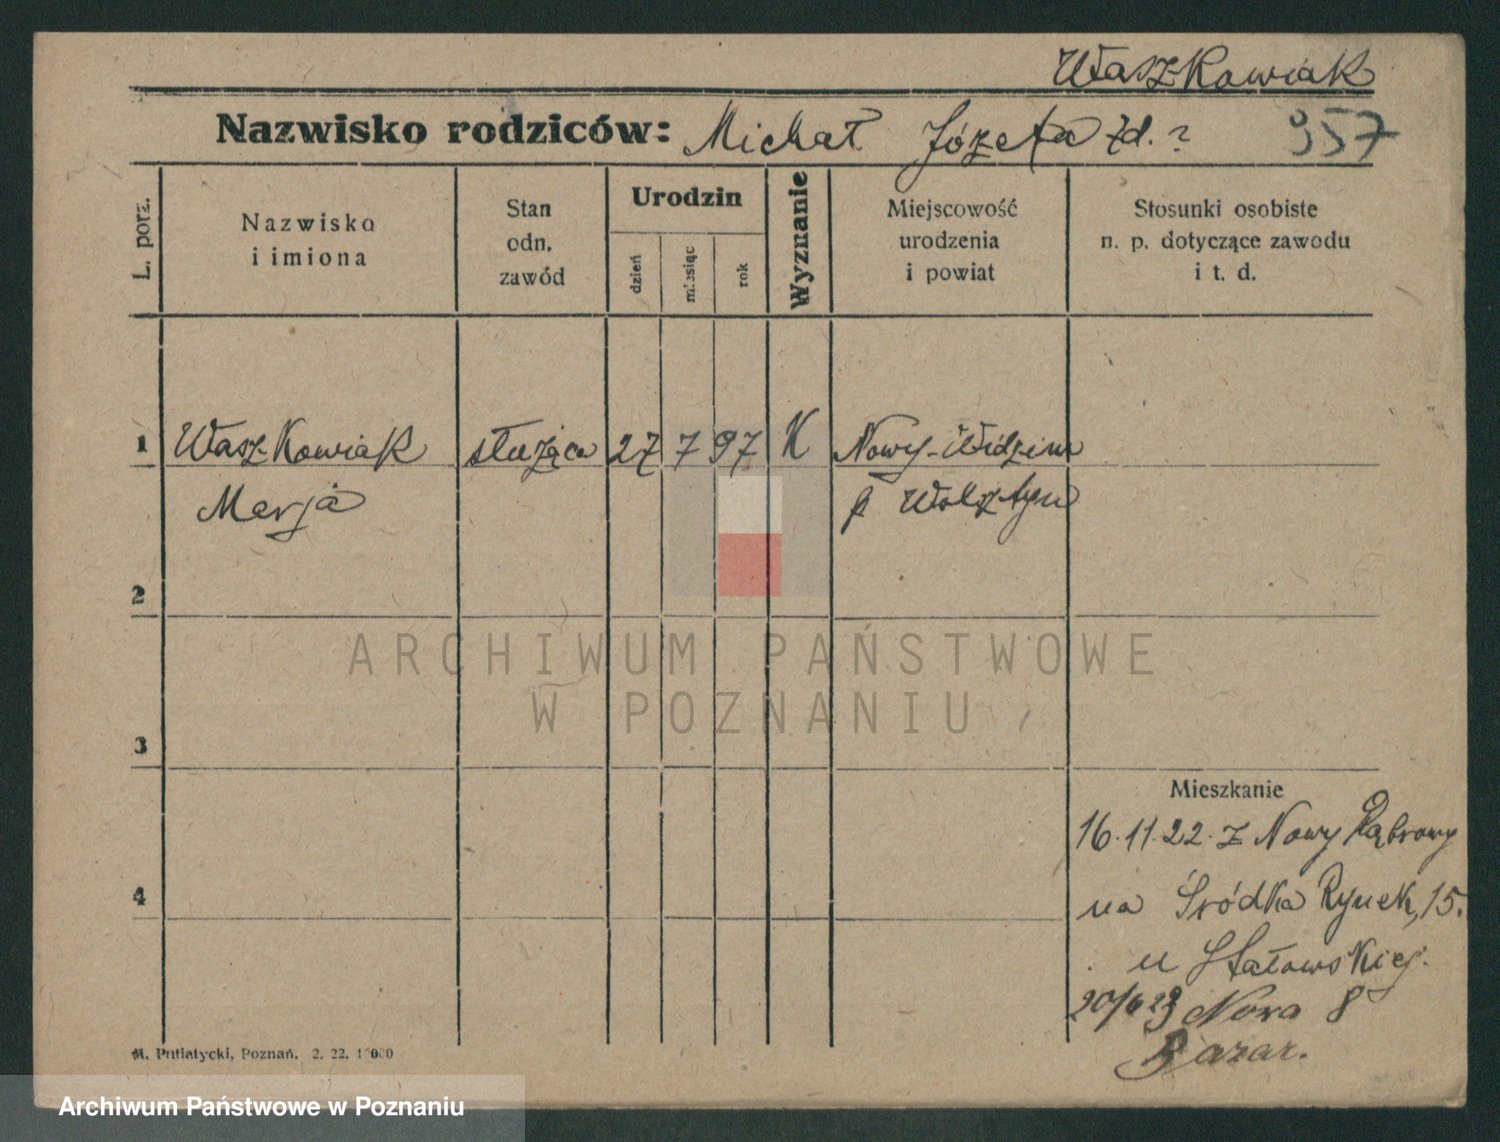 Waszkowiak
Nazwisko rodziców: Michał Józefa zd. ?
957
L. porz.
Nazwisko
i imiona
Stan
odn.
zawód
Urodzin
dzień
miesiąc
rok
Wyznanie
Miejscowość
urodzenia
i powiat
Stosunki osobiste
n. p. dotyczące zawodu
i t. d.
1 Waszkowiak służąca 27 7 97 K Nowy-Widzim
Marja p Wolsztyn
2
ARCHIWUM PAŃSTWOWE
W POZNANIU
3
Mieszkanie
16.11.22. z Nowy Dąbrowy
4
na Śródka Rynek, 15.
u Stałowskiej.
20/6 23 Nowa 8
Bazar.
M. Putiatycki, Poznań. 2. 22. 1000
Archiwum Państwowe w Poznaniu